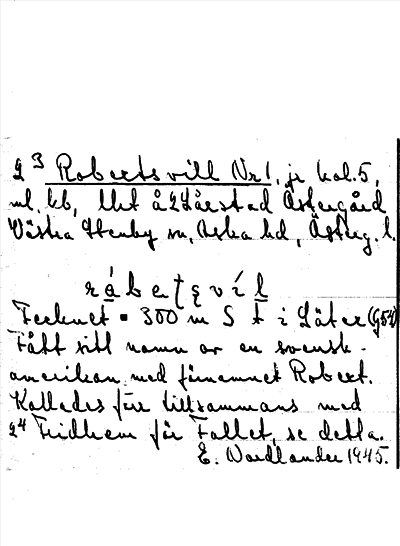 g3 Robertsvill Nr 1, jr kol. 5,
ml. kb, Utet å Lårstad Östergård
Västra Stenby sn, Aska hd, Österg. l.
rábetşvíl
Tecknet ▪ 300 m S t i Säter (G54)
Fått sitt namn av en svensk-
amerikan med förnamnet Robert.
Kallades förr tillsammans med
g4 Fridhem för Fallet, se detta.
E. Nordlander 1945.